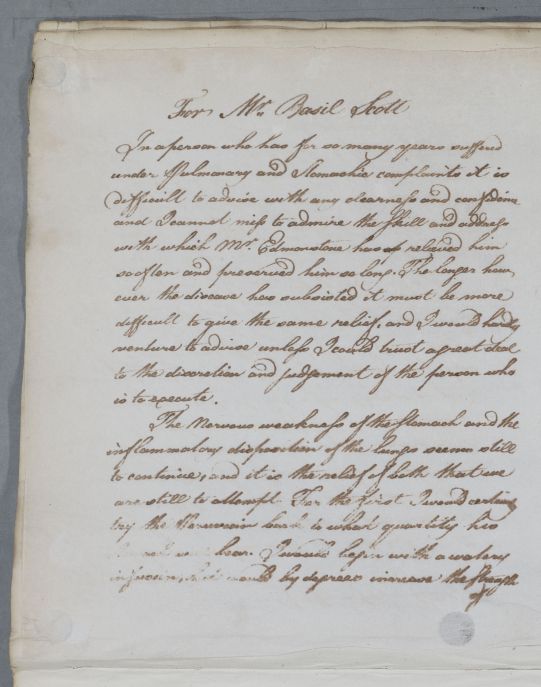 For Mr. Basil Scott
In a person who has for so many years suffered
under Pulmonary and Stomachic complaints it is
difficult to advise with any clearness and confidence
and I cannot miss to admire the skill and address
with which Mr. Edmonstone has relieved him
so often and preserved him so long. The longer how
ever the disease has subsisted it must be more
difficult to give the same relief, and I would hardly
venture to advise unless I could trust a great deal
to the discretion and judgement of the person who
is to execute.
The Nervous weakness of the Stomach and the
inflammatory disposition of the lungs seems still
to continue, and it is the relief of both that we
are still to attempt. For the first I would certainly
try the Peruvian bark in what quantity his
bear. I would begin with a watery
infusion, but would by degrees increase the strength
of